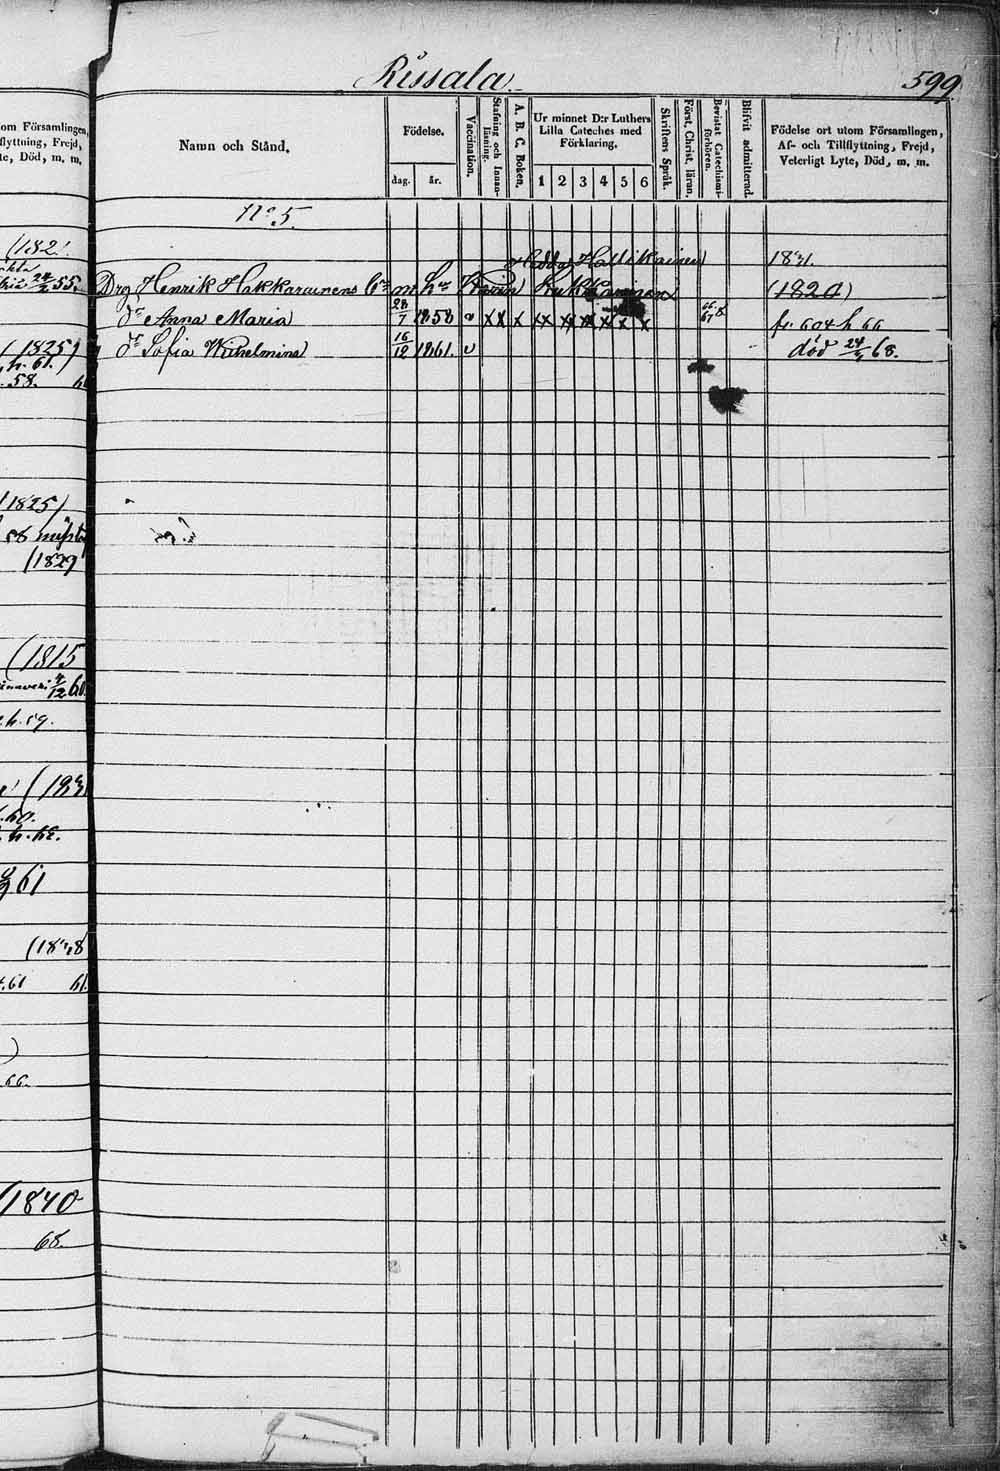 Rissala
599
om Församlingen,
flyttning, Frejd,
te, Död, m. m.
Namn och Stånd.
Födelse.
dag.
år.
Vaccination.
Stafning och Innanläsning.
A. B. C. Boken.
Ur minnet D:r Luthers
Lilla Cateches med
Förklaring.
1 2 3 4 5 6
Skriftens Språk.
Först. Christ. läran.
Bevistat Catechismiförhören.
Blifvit admitterad.
Födelse ort utom Församlingen,
Af- och Tillflyttning, Frejd,
Veterligt Lyte, Död, m. m.
No 5.
Hedda Hallikainen 1831.
Drg Henrik Hakkarainens (1820)
Anna Maria 28/7 1858 v x x x x x x x x x fr. 604 h 66
Sofia Wilhelmina 16/12 1861. v död 24/ 68.
(182
24/ 55.
(1825)
h. 61.
58.
1825)
58
(1829
(1815
4/12 60
h. 59.
h. 62.
61
61
66.
(1840
68.